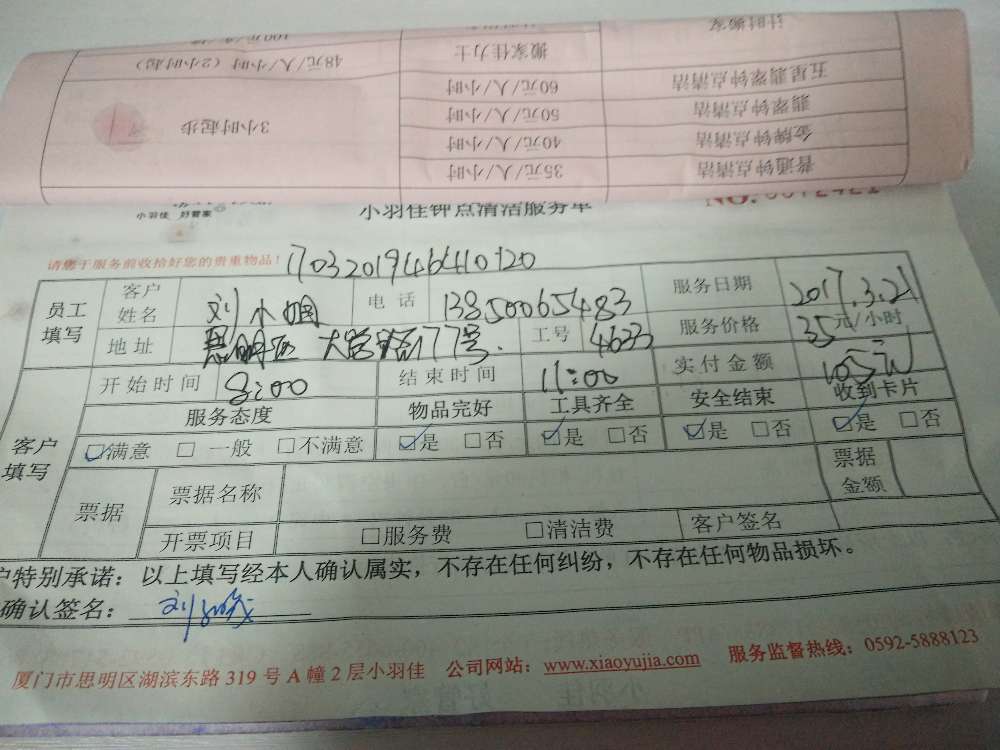 计时搬家
搬家佳力士 48元/人/小时（2小时起）
五星翡翠钟点清洁 60元/人/小时
翡翠钟点清洁 50元/人/小时 3小时起步
金牌钟点清洁 40元/人/小时
普通钟点清洁 35元/人/小时
小羽佳 好管家
小羽佳钟点清洁服务单
请您于服务前收拾好您的贵重物品！
员工填写 客户姓名 刘小姐 电话 13850065483 服务日期 2017.3.21
地址 思明区 大学路177号. 工号 4633 服务价格 35元/小时
开始时间 8:00 结束时间 11:00 实付金额 105元
客户填写 服务态度 物品完好 工具齐全 安全结束 收到卡片
满意 一般 不满意 是 否 是 否 是 否 是 否
票据 票据名称 票据金额
开票项目 服务费 清洁费 客户签名
户特别承诺：以上填写经本人确认属实，不存在任何纠纷，不存在任何物品损坏。
确认签名：
厦门市思明区湖滨东路 319 号 A 幢 2 层小羽佳 公司网站：www.xiaoyujia.com 服务监督热线：0592-5888123